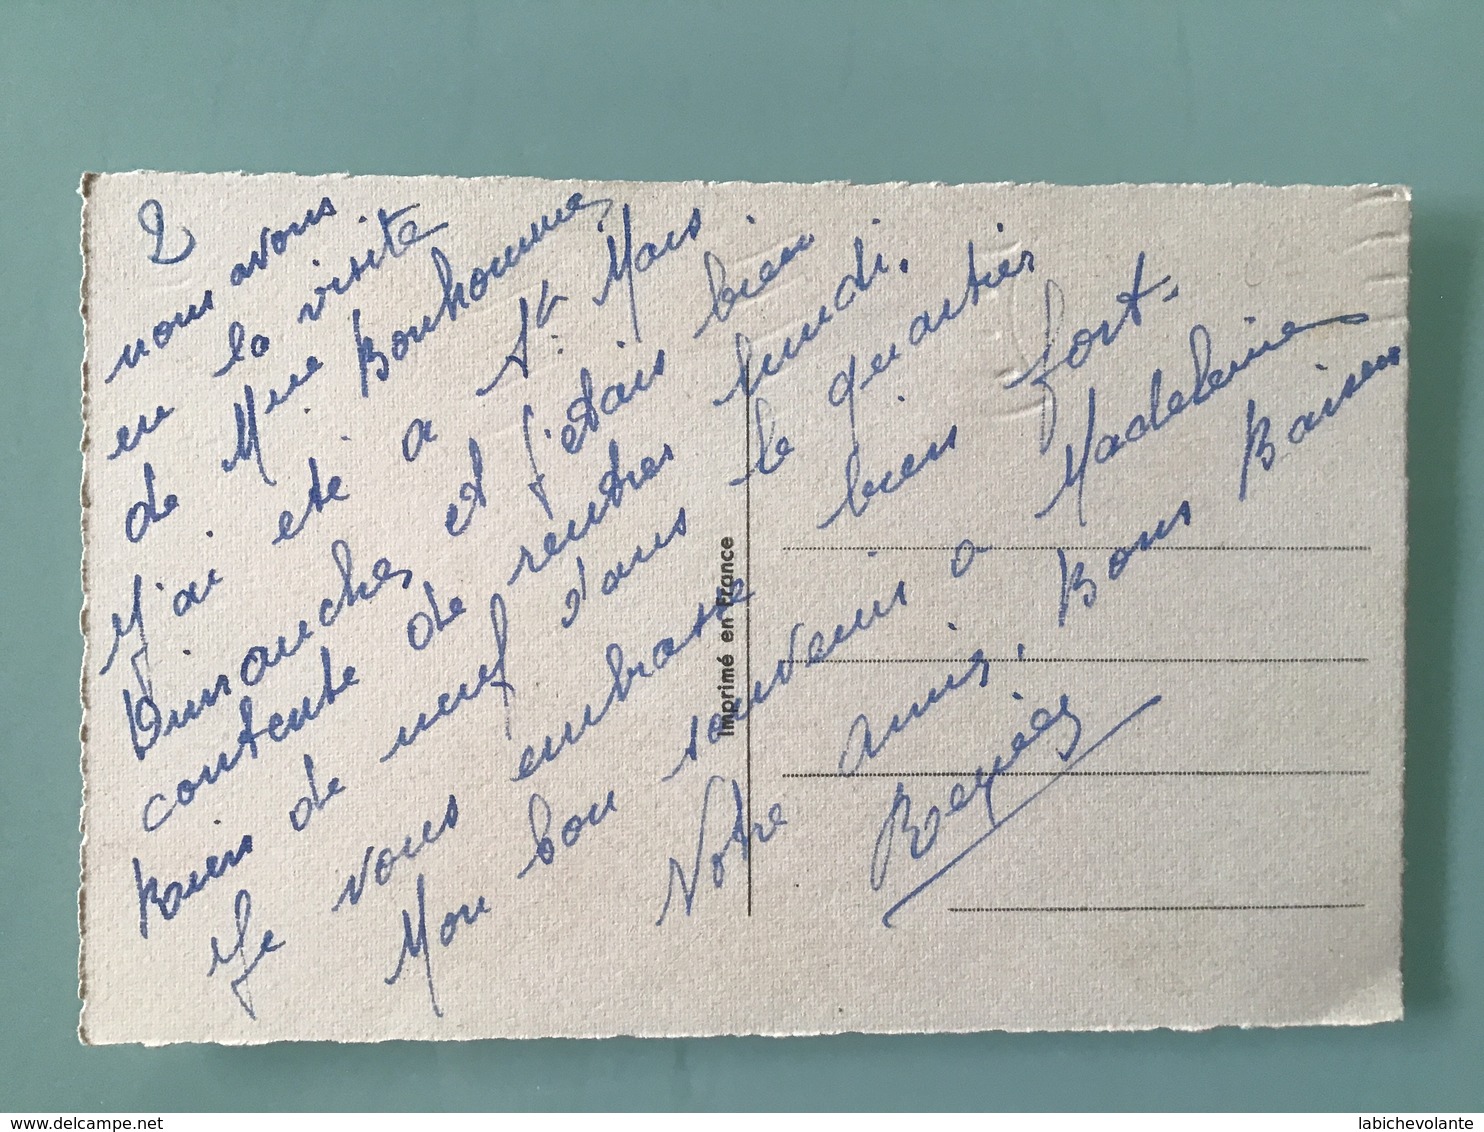 2
nous avons
eu la visite
de Mme Bonhomme
J'ai été a St Mars
Dimanches et j'étais bien
contente de rentrer lundi.
Rien de neuf dans le quartier
Je vous embrasse bien fort.
Mon bon souvenir a Madeleine
Votre amis. Bons Baisers
Imprimé en France
delcampe.net
labichevolante